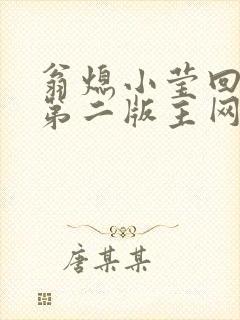 翁熄小莹回
第二版主网
唐某某